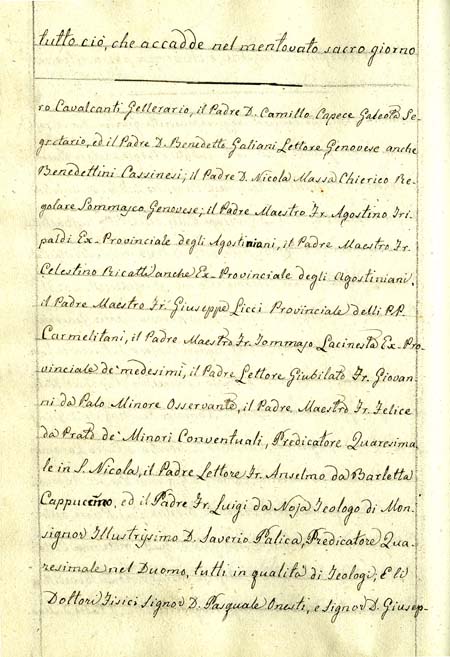 tutto ciò, che accadde nel mentovato sacro giorno
ro Cavalcanti Gellerario, il Padre D. Camillo Capece Galeota Se-
gretario, ed il Padre D. Benedetto Galiani Lettore Genovese anche
Benedettini Cassinesi; il Padre D. Nicola Massa Chierico Re-
golare Sommasco Genovese; il Padre Maestro Fr. Agostino Tri-
paldi Ex-Provinciale degli Agostiniani, il Padre Maestro Fr.
Celestino Ricatti anche Ex-Provinciale degli Agostiniani,
il Padre Maestro Fr. Giuseppe Licci Provinciale delli P.P.
Carmelitani, il Padre Maestro Fr. Tommaso Lacinesta Ex-Pro-
vinciale de' medesimi, il Padre Lettore Giubilato Fr. Giovan-
ni da Palo Minore Osservante, il Padre Maestro Fr. Felice
da Prato de' Minori Conventuali, Predicatore Quaresima-
le in S. Nicola, il Padre Lettore Fr. Anselmo da Barletta
Cappuccino, ed il Padre Fr. Luigi da Noja Teologo di Mon-
signor Illustrissimo D. Saverio Palica, Predicatore Qua-
resimale nel Duomo, tutti in qualità di Teologi, E li
Dottori Fisici Signor D. Pasquale Onesti, e Signor D. Giusep-